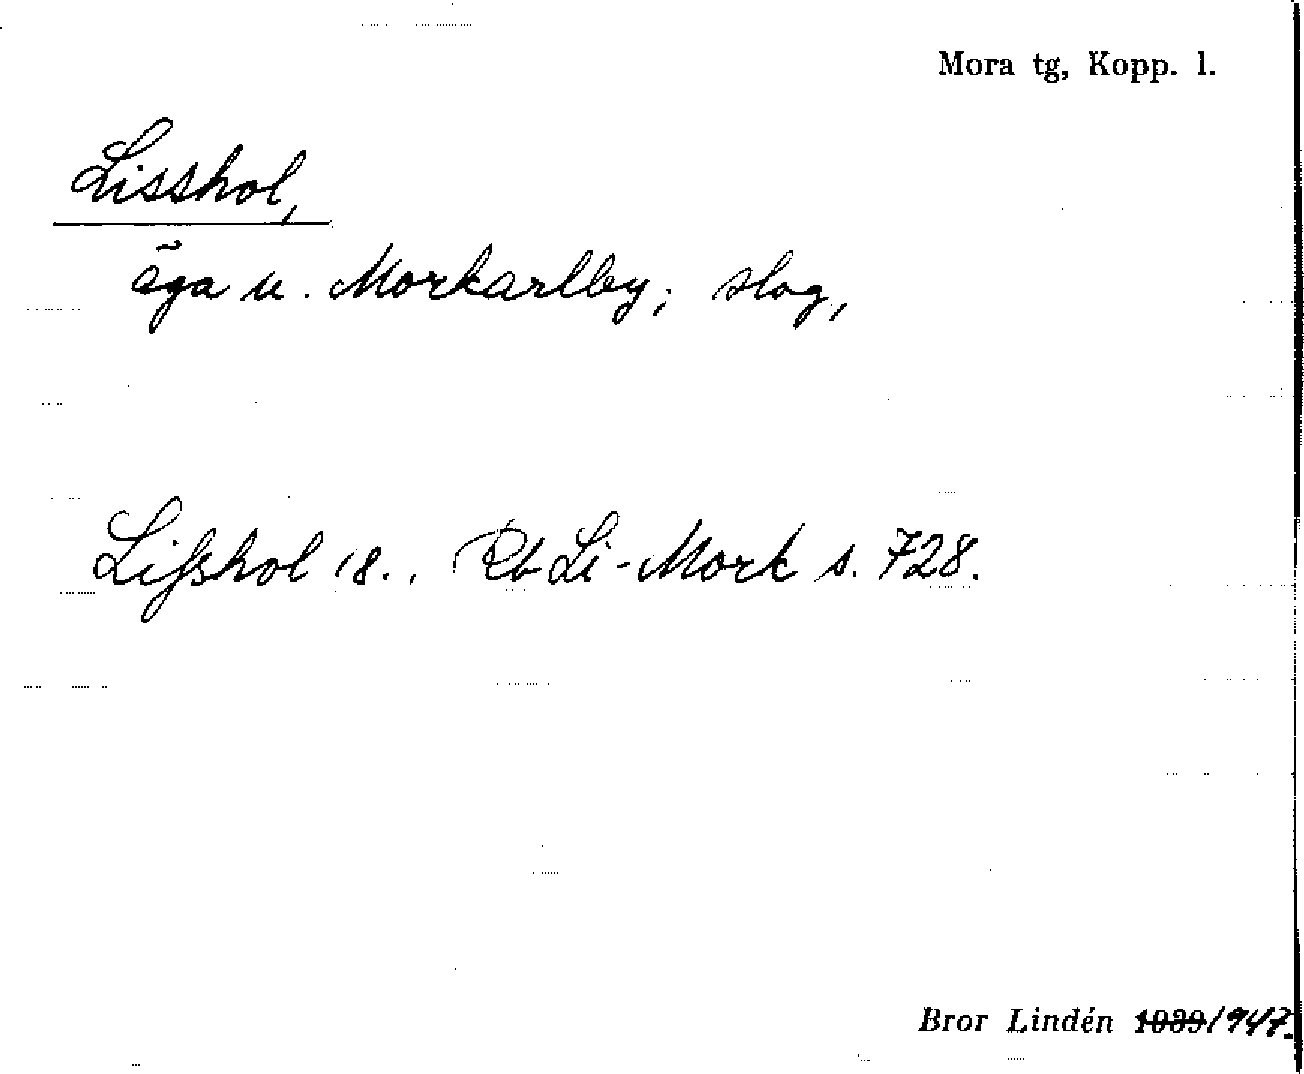 Mora tg, Kopp. l.
Lisshol,
äga u. Morkarlby; slog,
Lifshol 18., Rb Li-Mork s. 728.
Bror Lindén 1939/947.